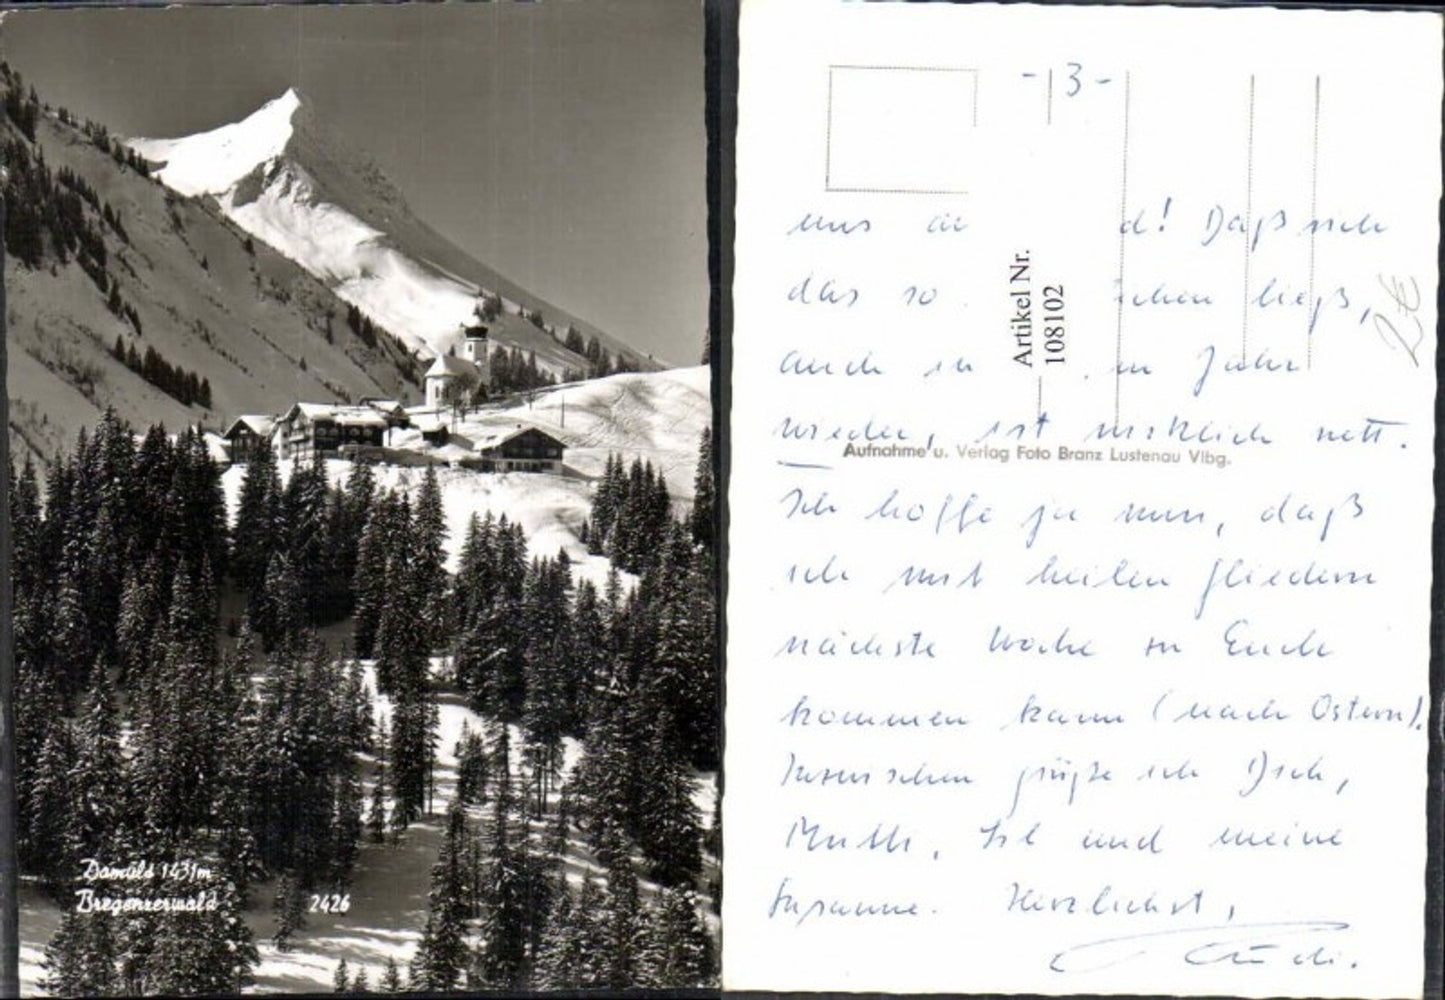 Damüls 1431m
Bregenzerwald
2426
- 3 -
uns d! Daß sich
das so ließ,
auch in Jahr
wieder, ist wirklich nett.
Ich hoffe ja nun, daß
ich mit heilen Gliedern
nächste Woche zu Euch
kommen kann (nach Ostern).
Inzwischen grüße ich Dich,
Mutti, und meine
Susanne. Herzlichst,
Aufnahme u. Verlag Foto Branz Lustenau Vlbg.
Artikel Nr.
108102
2€